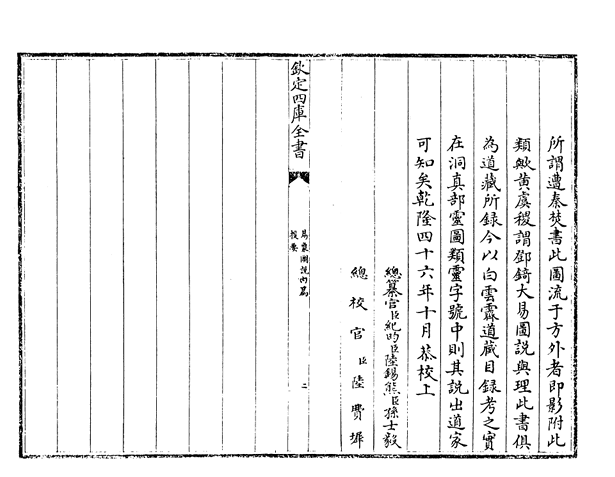 所謂遭秦焚書此圖流于方外者即影附此
類歟黄虞稷謂鄧錡大易圖説與理此書俱
為道藏所録今以白雲霽道藏目録考之實
在洞真部靈圖類靈字號中則其説出道家
可知矣乾隆四十六年十月恭校上
總纂官臣紀昀臣陸錫熊臣孫士毅
總校官臣陸費墀
欽定四庫全書
易象圖説内篇
提要
二